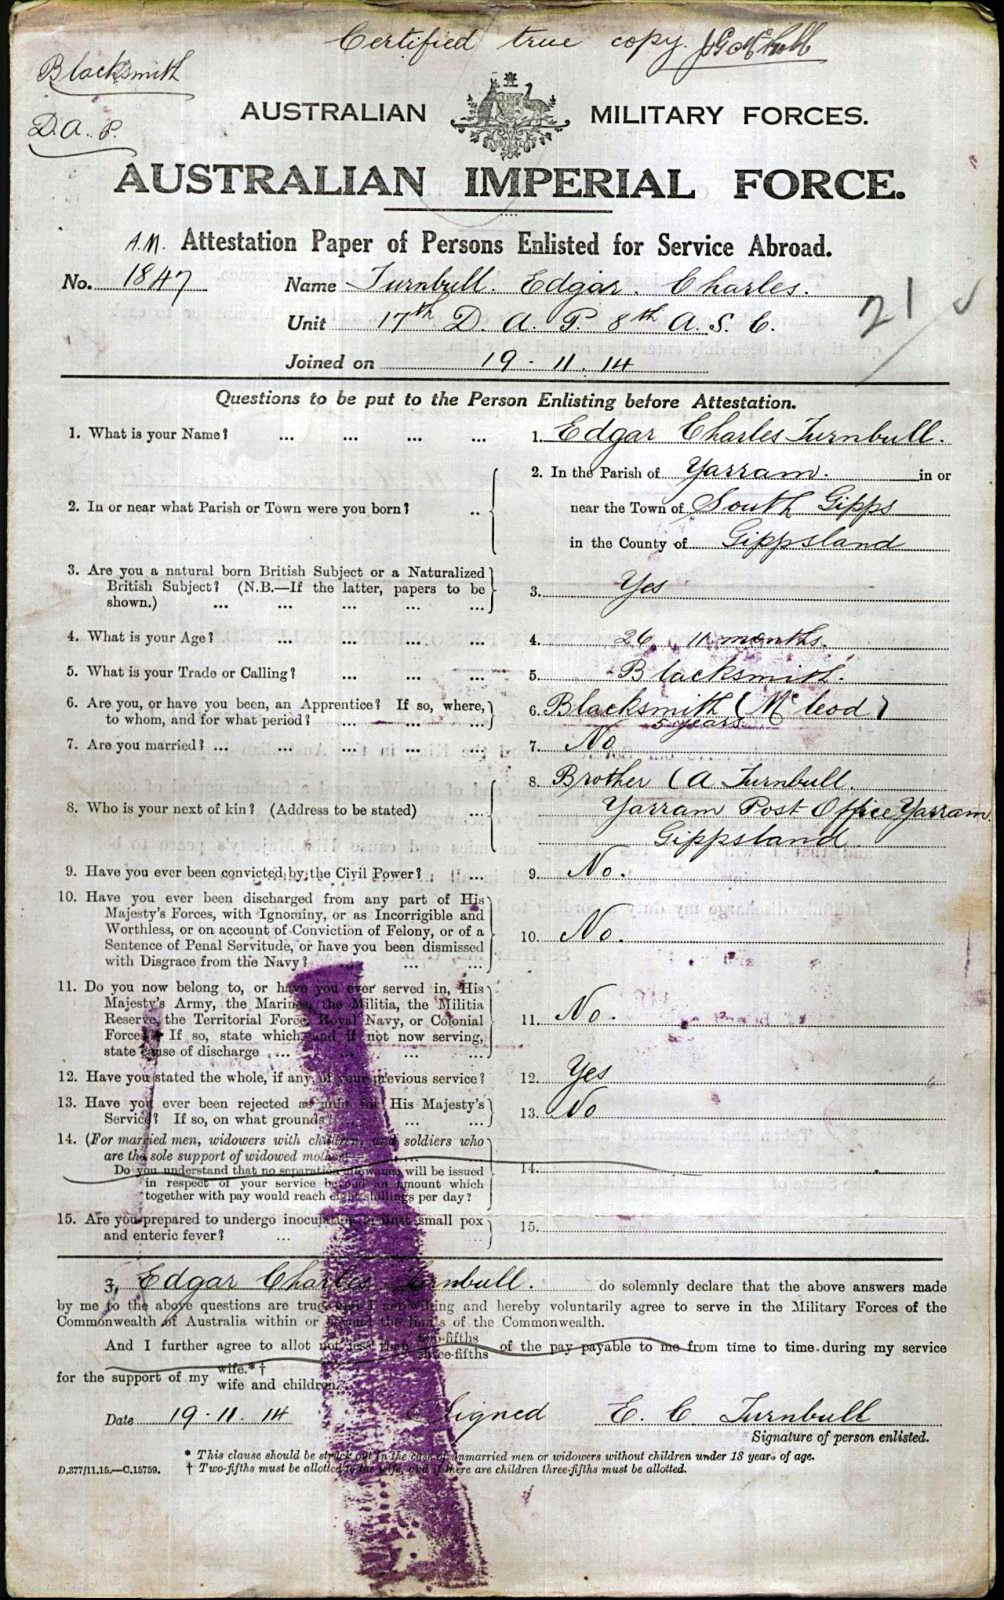 Certified true copy.
Blacksmith
D.A.P.
AUSTRALIAN MILITARY FORCES.
AUSTRALIAN IMPERIAL FORCE.
A.M. Attestation Paper of Persons Enlisted for Service Abroad.
No. 1847 Name Turnbull. Edgar. Charles.
Unit 17th D. A. P. 8th A. S. C.
21
Joined on 19 . 11 . 14
Questions to be put to the Person Enlisting before Attestation.
1. What is your Name? ... ... ... ... 1. Edgar Charles Turnbull.
2. In or near what Parish or Town were you born? ..
2. In the Parish of Yarram. in or
near the Town of South Gipps
in the County of Gippsland
3. Are you a natural born British Subject or a Naturalized
British Subject? (N.B.—If the latter, papers to be
shown.) ... ... ... ... ...
3. Yes
4. What is your Age? ... ... ... ... 4. 26. 11 months.
5. What is your Trade or Calling? ... ... ... 5. Blacksmith.
6. Are you, or have you been, an Apprentice? If so, where,
to whom, and for what period? ... ... ...
6. Blacksmith (Mc Leod)
5 years
7. Are you married? ... ... ... ... ... 7. No
8. Who is your next of kin? (Address to be stated) ...
8. Brother (A Turnbull.
Yarram Post Office Yarram
Gippsland
9. Have you ever been convicted by the Civil Power? ... 9. No.
10. Have you ever been discharged from any part of His
Majesty's Forces, with Ignominy, or as Incorrigible and
Worthless, or on account of Conviction of Felony, or of a
Sentence of Penal Servitude, or have you been dismissed
with Disgrace from the Navy? ... ...
10. No.
11. Do you now belong to, or have you ever served in, His
Majesty's Army, the Marines, the Militia, the Militia
Reserve, the Territorial Force, Royal Navy, or Colonial
Forces? If so, state which, and if not now serving,
state cause of discharge ... ... ... ...
11. No.
12. Have you stated the whole, if any, of your previous service? 12. Yes
13. Have you ever been rejected as unfit for His Majesty's
Service? If so, on what grounds? ... ...
13. No
14. (For married men, widowers with children, and soldiers who
are the sole support of widowed mother)
Do you understand that no separation allowance will be issued
in respect of your service beyond an amount which
together with pay would reach eight shillings per day?
14.
15. Are you prepared to undergo inoculation against small pox
and enteric fever? ...
15.
I, Edgar Charles Turnbull. do solemnly declare that the above answers made
by me to the above questions are true, and I am willing and hereby voluntarily agree to serve in the Military Forces of the
Commonwealth of Australia within or beyond the limits of the Commonwealth.
And I further agree to allot not less than two-fifths three-fifths of the pay payable to me from time to time during my service
for the support of my wife.*† wife and children.
Date 19 . 11 . 14 Signed E. C. Turnbull
Signature of person enlisted.
* This clause should be struck out in the case of unmarried men or widowers without children under 18 years of age.
D.377/11.15.—C.15759. † Two-fifths must be allotted to the wife, and if there are children three-fifths must be allotted.